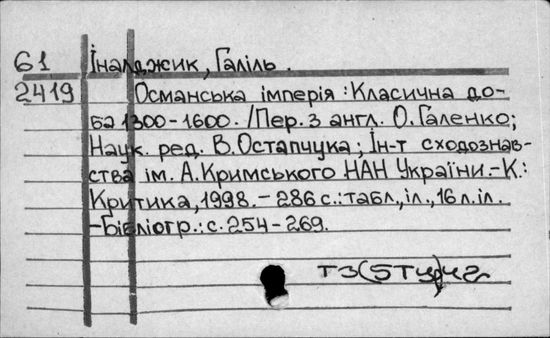 61 Іналджик, Галіль.
2419 Османська імперія: Класична до-
ба 1300-1600. /Пер. з англ. О.Галенко;
Наук. ред. В.Остапчука; Ін-т сходознав-
ства ім. А.Кримського НАН України.-К.:
Критика, 1998. - 286 с.: табл., іл., 16 л. іл.
-Бібліогр.: с. 254-269.
Т3(5Ту)42